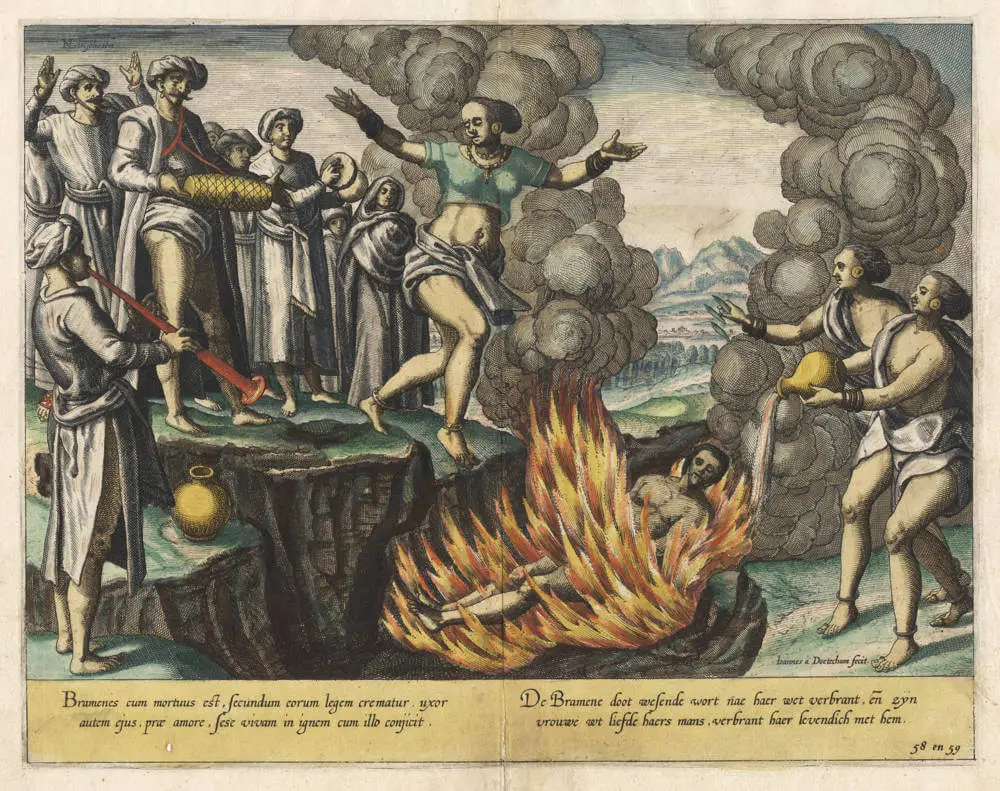 Bramenes cum mortuus est, secundum eorum legem crematur. uxor
autem ejus, præ amore, sese vivam in ignem cum illo conjicit.
De Bramene doot wesende wort nae haer wet verbrant, eñ zyn
vrouwe wt liefde haers mans, verbrant haer levendich met hem.
Ioannes à Doetechum fecit.
58 en 59